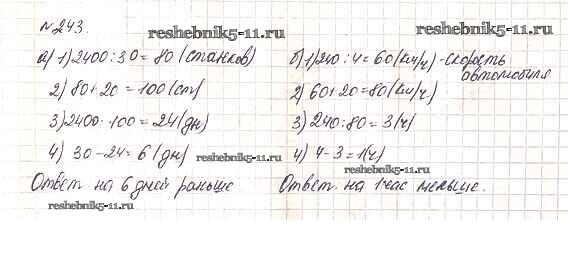 №243.
reshebnik5-11.ru
reshebnik5-11.ru
а) 1) 2400:30=80 (станков)
2) 80+20=100 (ст)
3) 2400·100=24 (дн)
4) 30-24=6 (дн)
reshebnik5-11.ru
Ответ на 6 дней раньше
reshebnik5-11.ru
б) 1) 240:4=60 (км/ч) - скорость
автомобиля
2) 60+20=80 (км/ч)
3) 240:80=3 (ч)
4) 4-3=1 (ч)
reshebnik5-11.ru
Ответ. на 1 час меньше.
reshebnik5-11.ru